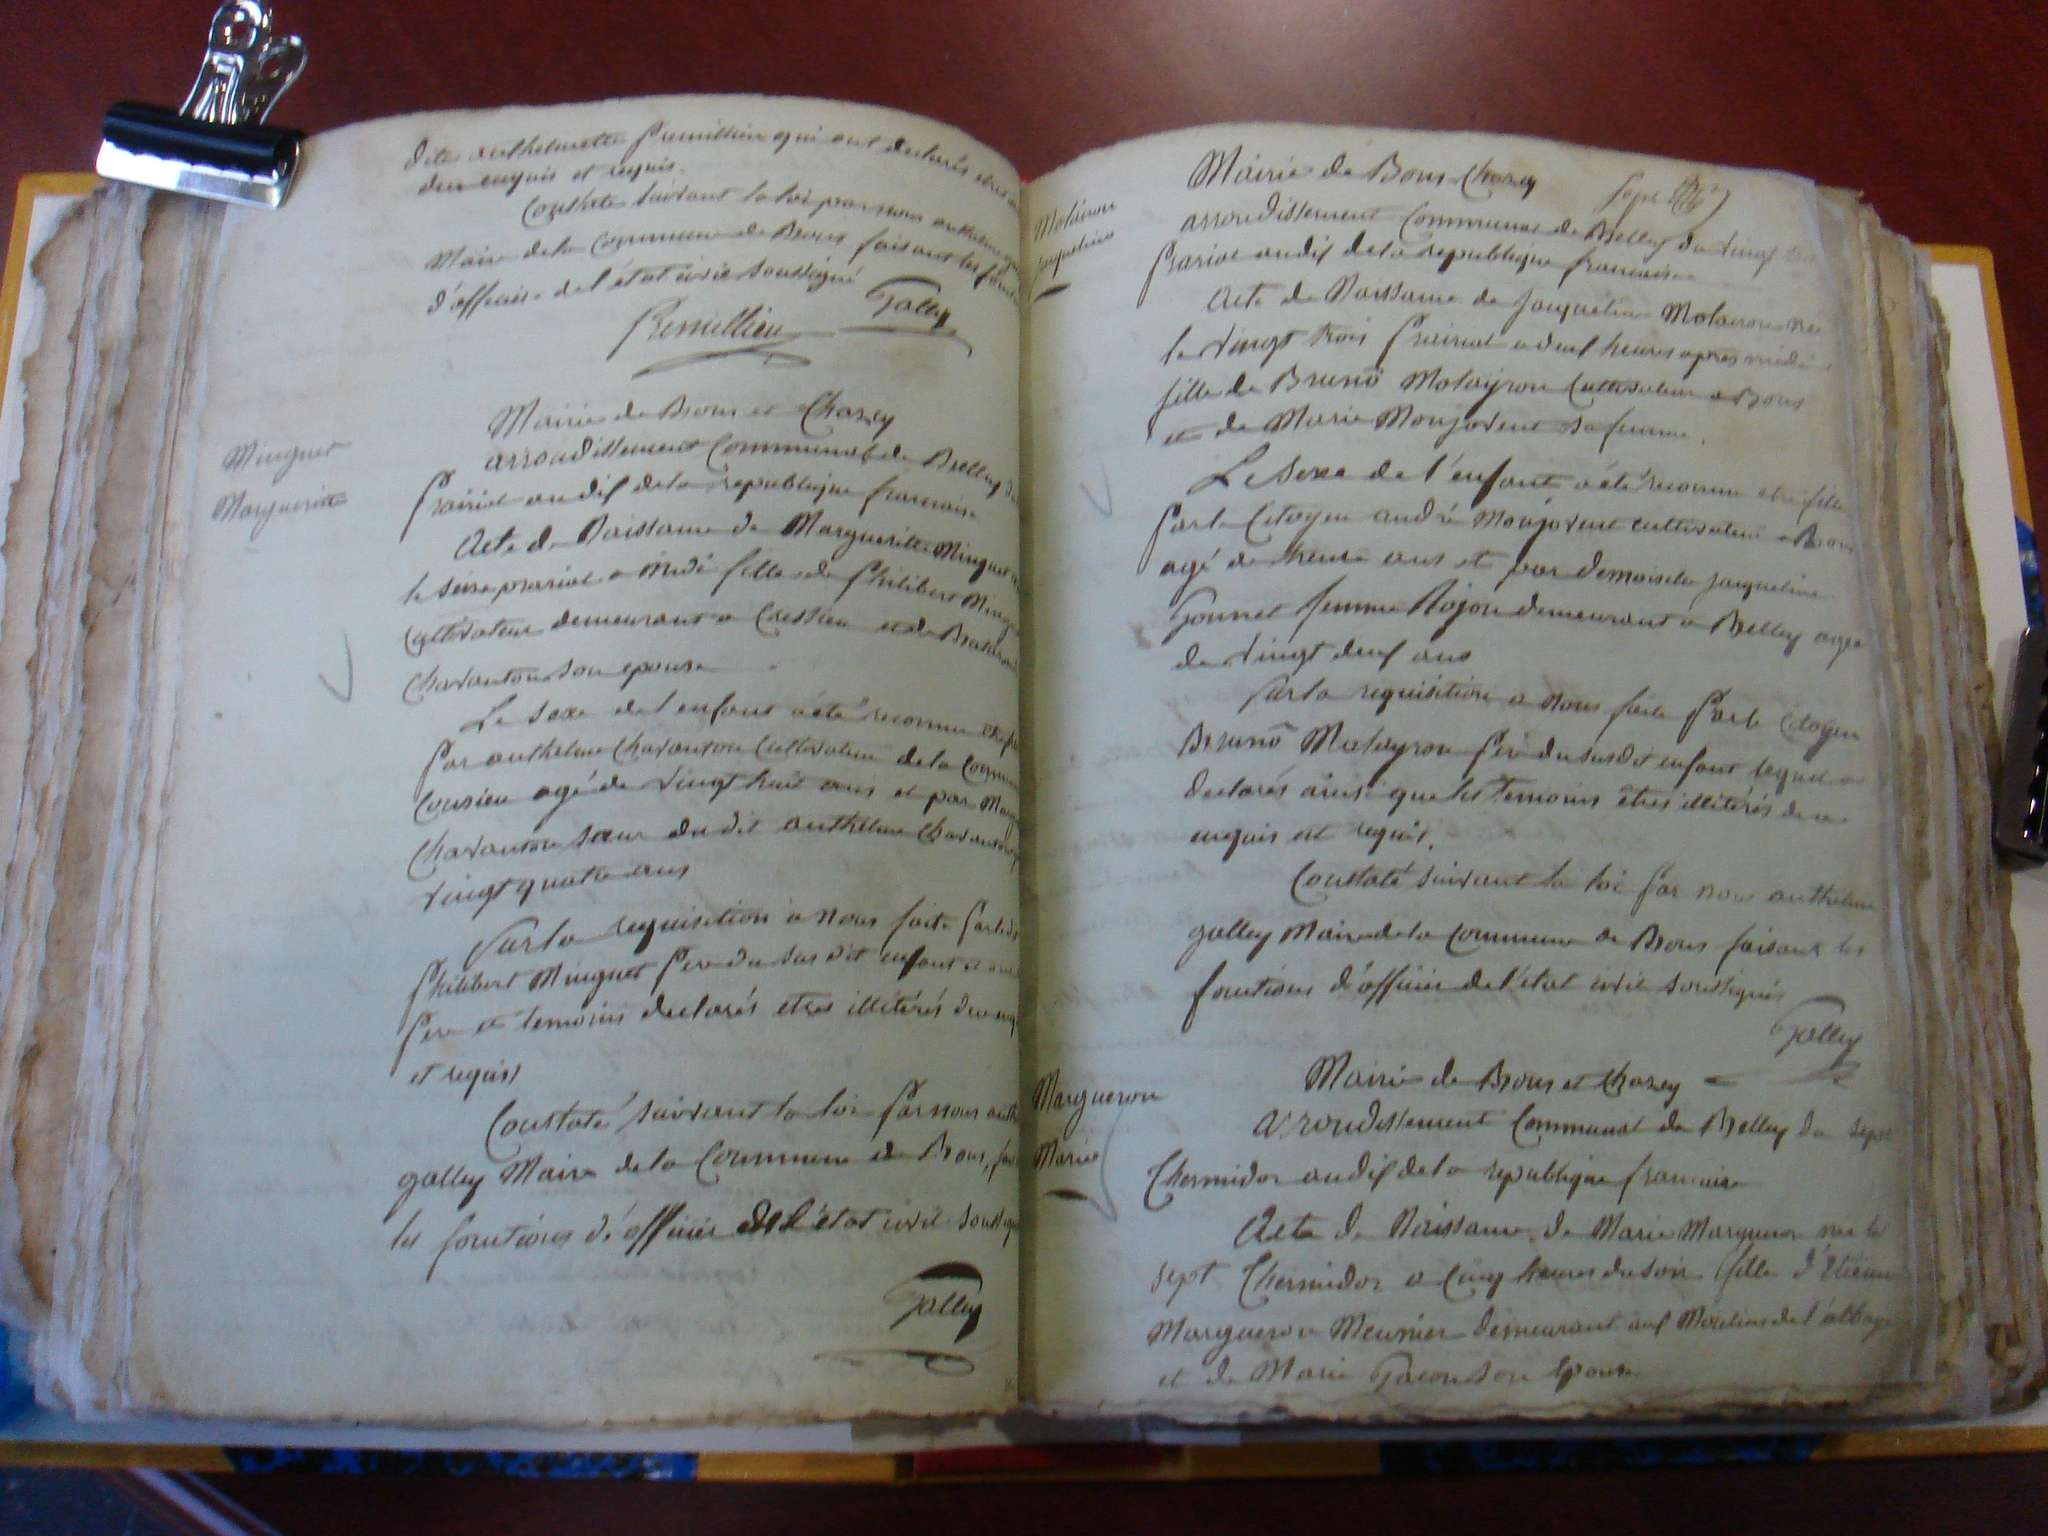 dite anthelmette Premillieu qui ont declarés etres
deu enquis et requis.
Constaté suivant la loi par nous anthelme
Maire de la Commune de Brons faisant les foncti
d'officie de l'état civil soussigné
Premillieu Galley
Minguet
Margueritte
Mairie de Brons et Chazey
arrondissement Communal de Belley du
Prairial an dix de la republique francaise
Acte de Naissance de Margueritte Minguet
le seize prarial a midi fille de Philibert Ming
Cultivateur demeurant a Cressieu et de
Charanton son epouse
Le sexe de l'enfant a été reconnu etre
Par anthelme Charanton Cultivateur de la Commu
agé de vingt huit ans et par
Charanton sœur du dit anthelme Charanton
vingt quatre ans
Sur la requisition a nous faite par
Philibert Minguet Pere du sus dit enfant
Pere et temoins declarés etres illitérés de
et requis
Constaté suivant la loi Par nous anth
galley Maire de la Commune de Brons,
les fonctions d'officier de l'état civil soussig
Galley
Molairon
Jaqueline
Mairie de Brons Chazey
arrondissement Communal de Belley du vingt
Prarial an dix de la republique francaise
Acte de Naissance de Jaqueline Molairon née
le vingt trois Prairial a deux heures apres midi
fille de Bruno Molayron Cultivateur a Brons
et de Marie Monjovent sa femme.
Le sexe de l'enfant a été reconnu etre fille
Par le Citoyen andré Monjovent cultivateur a Brons
agé de trente ans et par demoiselle jaqueline
Gonnet femme Rojon demeurant a Belley agée
de vingt deux ans
Sur la requisition a nous faite Par le Citoyen
Bruno Molayron Pere du susdit enfant lequel a
declarés ainsi que les temoins êtres illitérés de ce
enquis et requis.
Constaté suivant la loi Par nous anthelme
galley Maire de la Commune de Brons faisant les
fonctions d'officier de l'état civil soussignés
Galley
Margueron
Marie
Mairie de Brons et Chazey
arrondissement Communal de Belley du sept
Thermidor an dix de la republique francaise
Acte de Naissance de Marie Margueron née le
sept Thermidor a Cinq heures du soir fille d'Etienne
Margueron Meunier demeurant aux Moulins de l'abbaye
et de Marie Gacon son Epouse